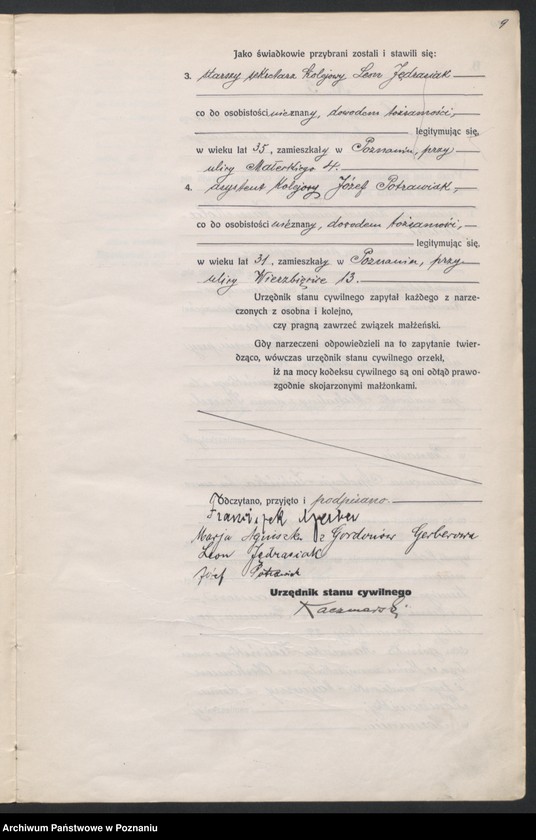 9
Jako świadkowie przybrani zostali i stawili się:
3. starszy sekretarz kolejowy Leon Jędrasiak
co do osobistości nieznany, dowodem tożsamości,
legitymując się,
w wieku lat 35, zamieszkały w Poznaniu, przy
ulicy Małeckiego 4.
4. asystent kolejowy Józef Potrawiak,
co do osobistości nieznany, dowodem tożsamości,
legitymując się,
w wieku lat 31, zamieszkały w Poznaniu, przy
ulicy Wierzbięcice 13.
Urzędnik stanu cywilnego zapytał każdego z narze-
czonych z osobna i kolejno,
czy pragną zawrzeć związek małżeński.
Gdy narzeczeni odpowiedzieli na to zapytanie twier-
dząco, wówczas urzędnik stanu cywilnego orzekł,
iż na mocy kodeksu cywilnego są oni odtąd prawo-
zgodnie skojarzonymi małżonkami.
Odczytano, przyjęto i podpisano.
Franciszek Gerber
Marja Agnieszka z Gordonów Gerberowa
Leon Jędrasiak
Józef Potrawiak
Urzędnik stanu cywilnego
Kaczmarski
Archiwum Państwowe w Poznaniu